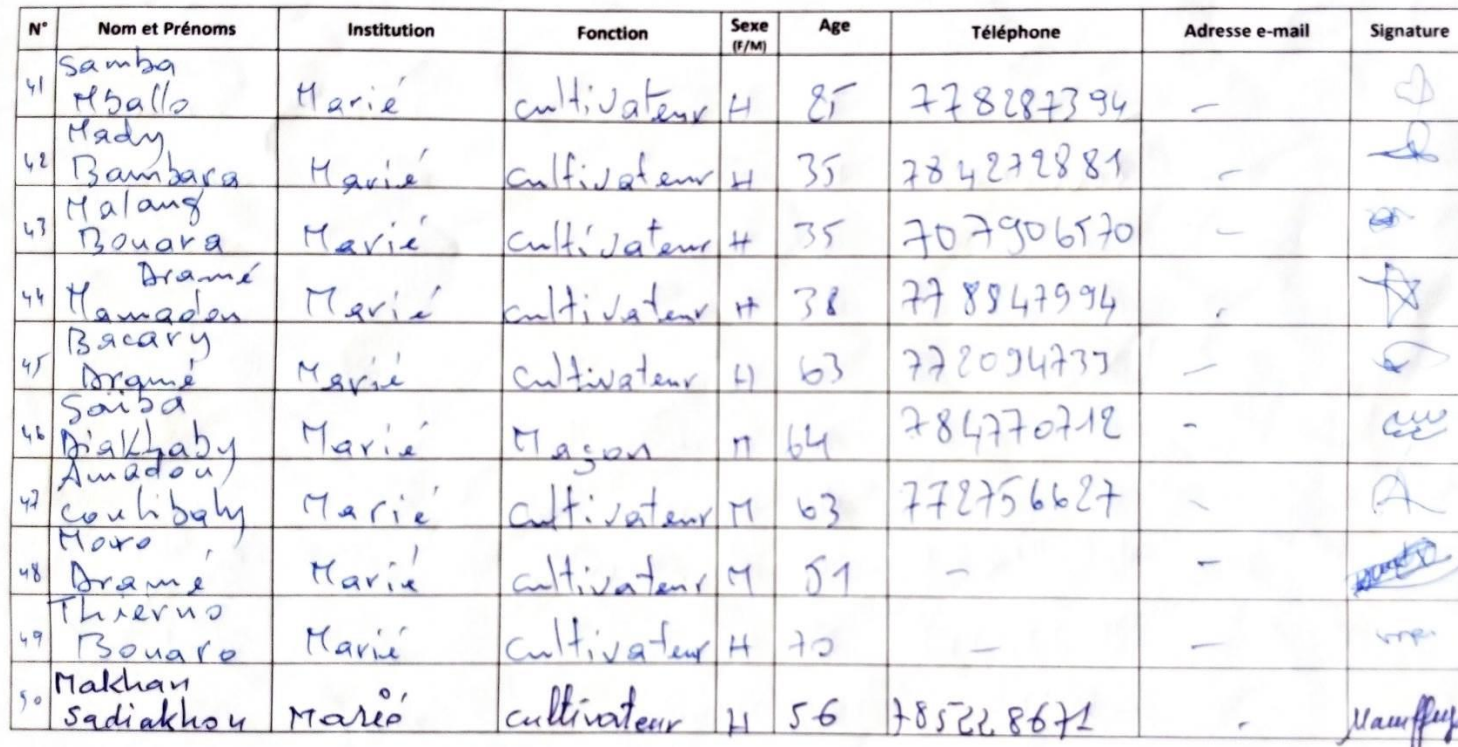 N° Nom et Prénoms Institution Fonction Sexe (F/M) Age Téléphone Adresse e-mail Signature
41 Samba Mballo Marié cultivateur H 85 778287394 -
42 Mady Bambara Marié cultivateur H 35 784272881 -
43 Malang Bouara Marié cultivateur H 35 707906570 -
44 Dramé Mamadou Marié cultivateur H 38 778847994 -
45 Bacary Dramé Marié cultivateur H 63 772094739 -
46 Saiba Diakhaby Marié Maçon M 64 784770712 -
47 Amadou Coulibaly Marié cultivateur M 63 772756627 -
48 Moro Dramé Marié cultivateur M 51 - -
49 Thierno Bouaro Marié cultivateur H 70 - -
50 Makhan Sadiakhou Marié cultivateur H 56 785228671 -